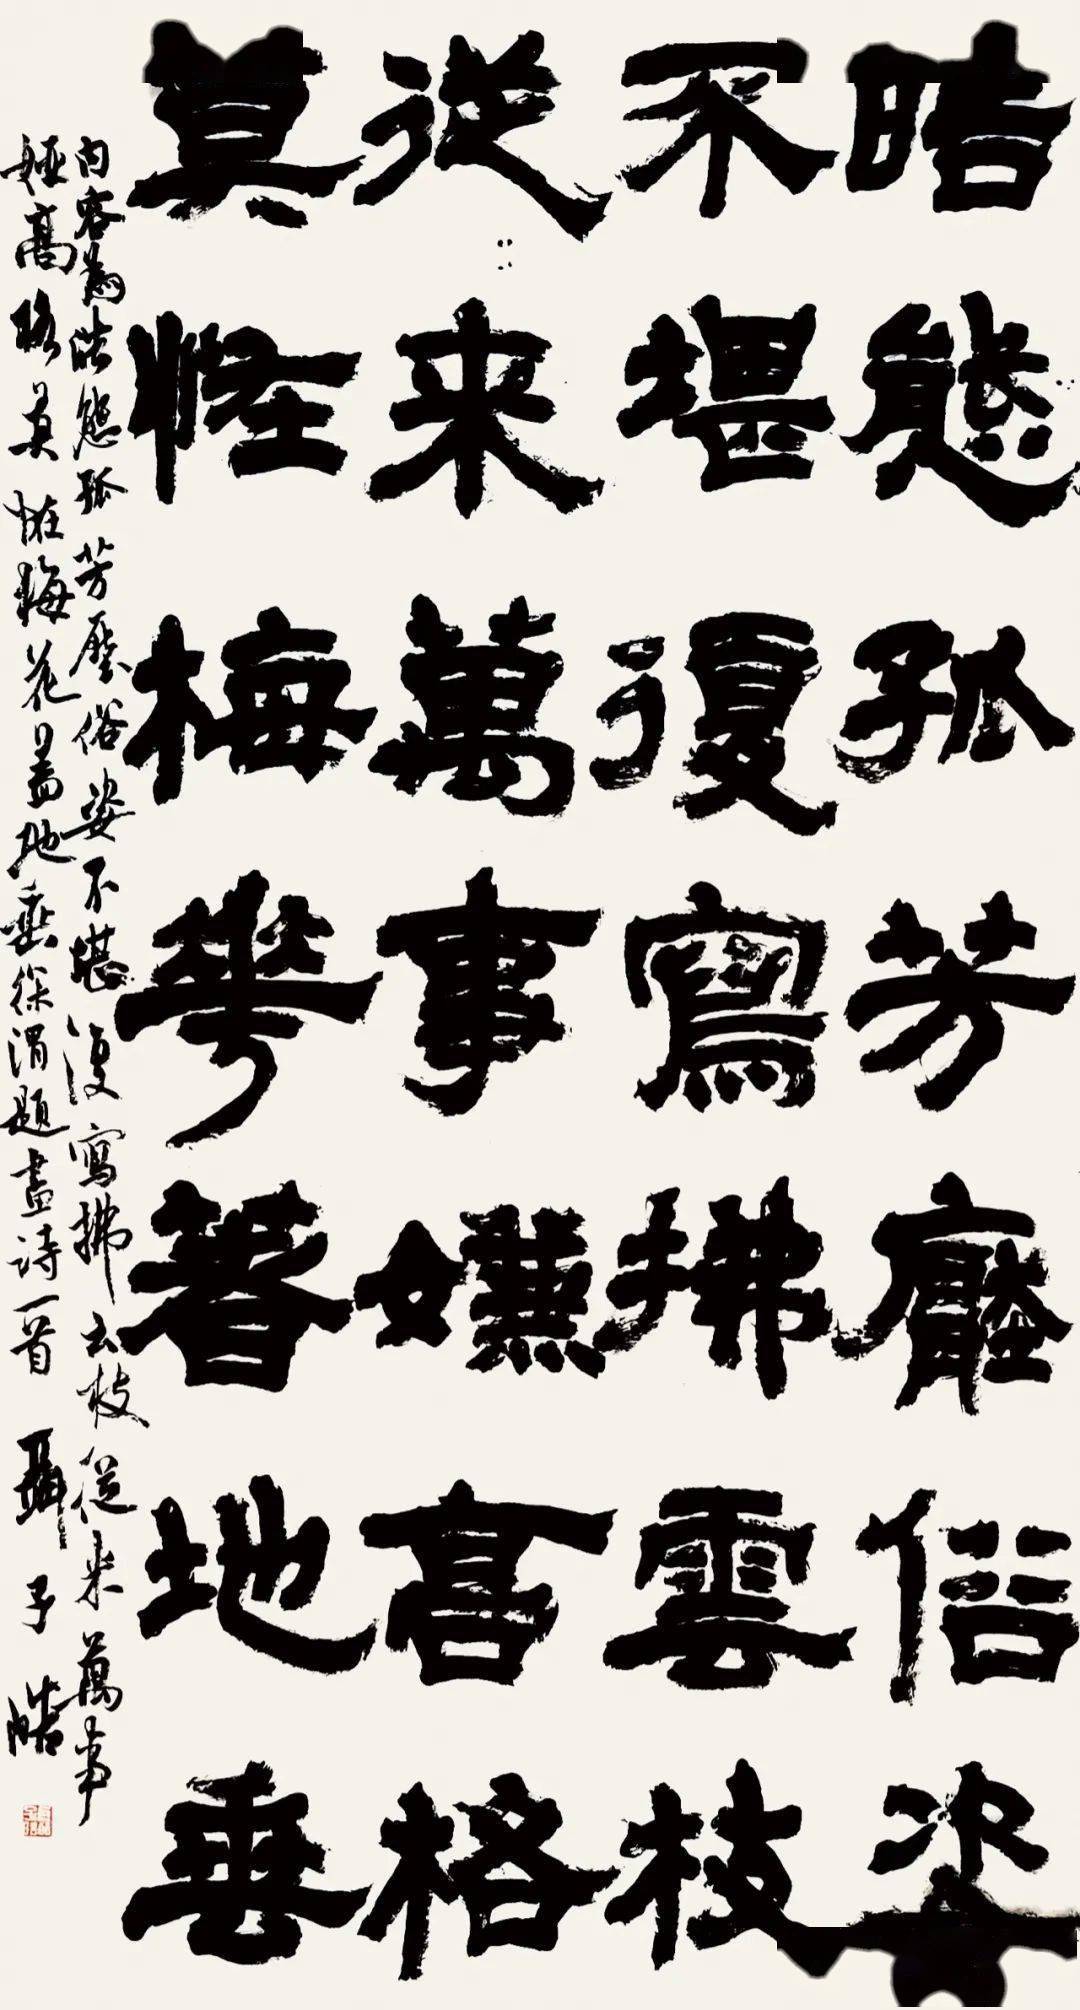 晧態孤芳壓俗姿
不堪復寫拂雲枝
從来萬事嫌高格
莫怪梅華著地垂
内容為皓態孤芳壓俗姿不堪復寫拂云枝從来萬事
嫌高格莫怪梅花著地垂徐渭題畫詩一首 聶子皓